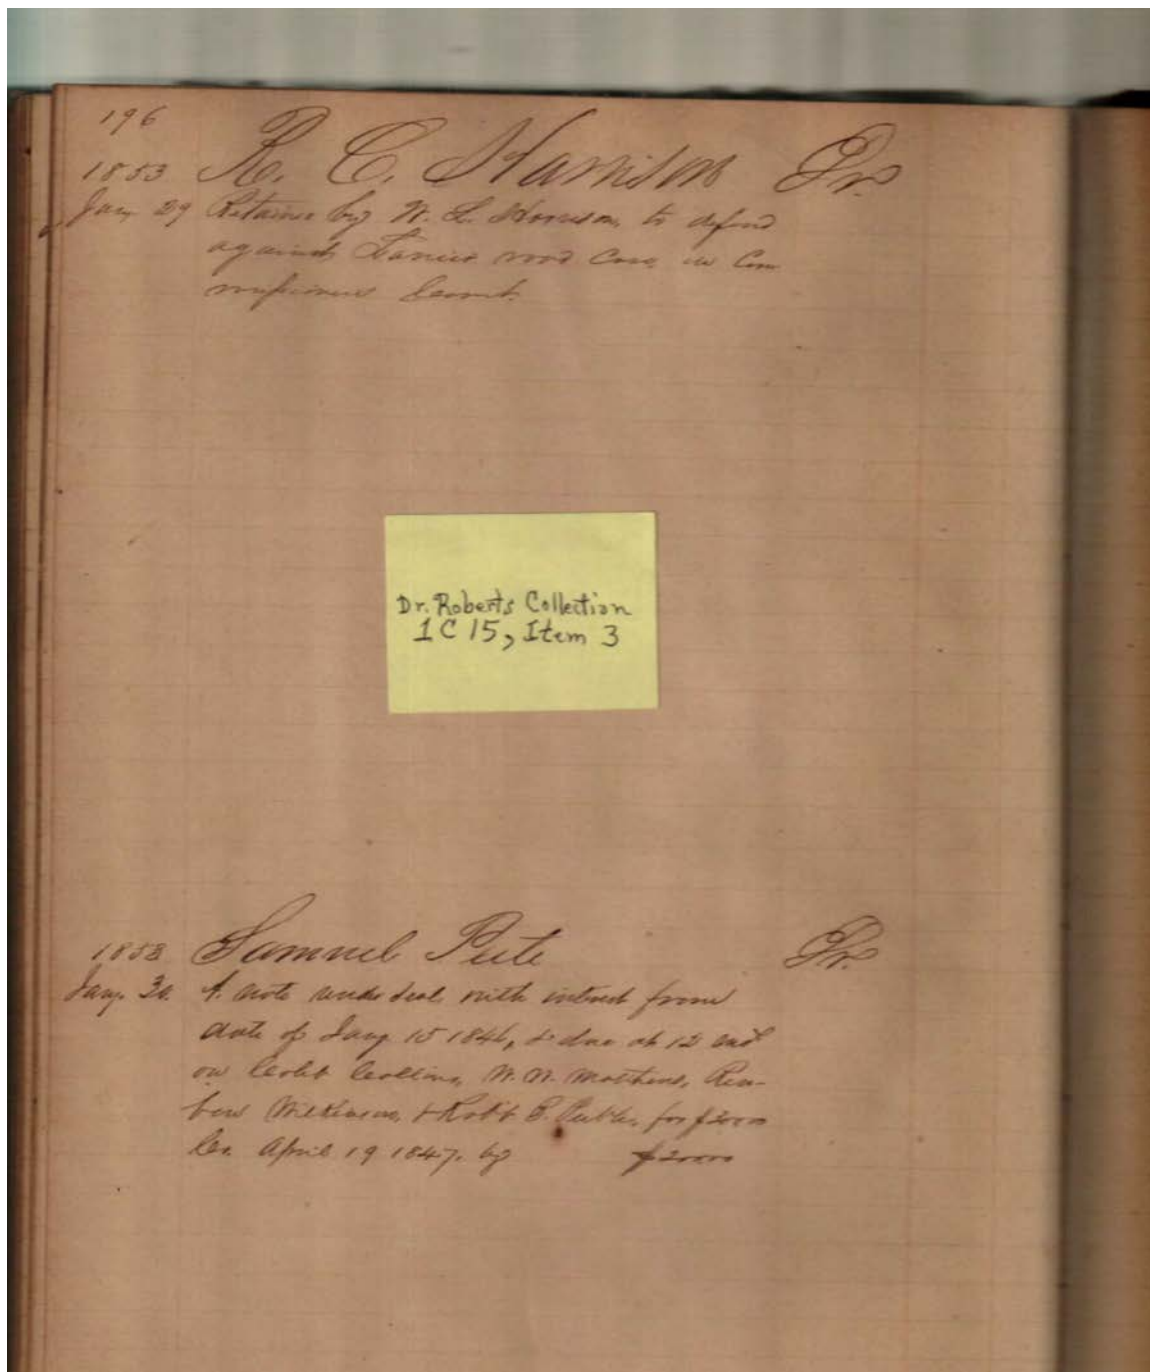 196
1853 R. C. Harrison Dr.
Jany 29 Retainer by W. L. Harrison, to defend
against road Case, in Com
missioners Court.
Dr. Roberts Collection
1C15, Item 3
1853 Samuel Peete Dr.
Jany. 30. A note under seal with interest from
date of Jany 15 1846, & due at 12
on Collins, W. W. Matthews, Reu-
ben Wilkinson, & Robt B. for $2000
Cr. April 19 1847. by